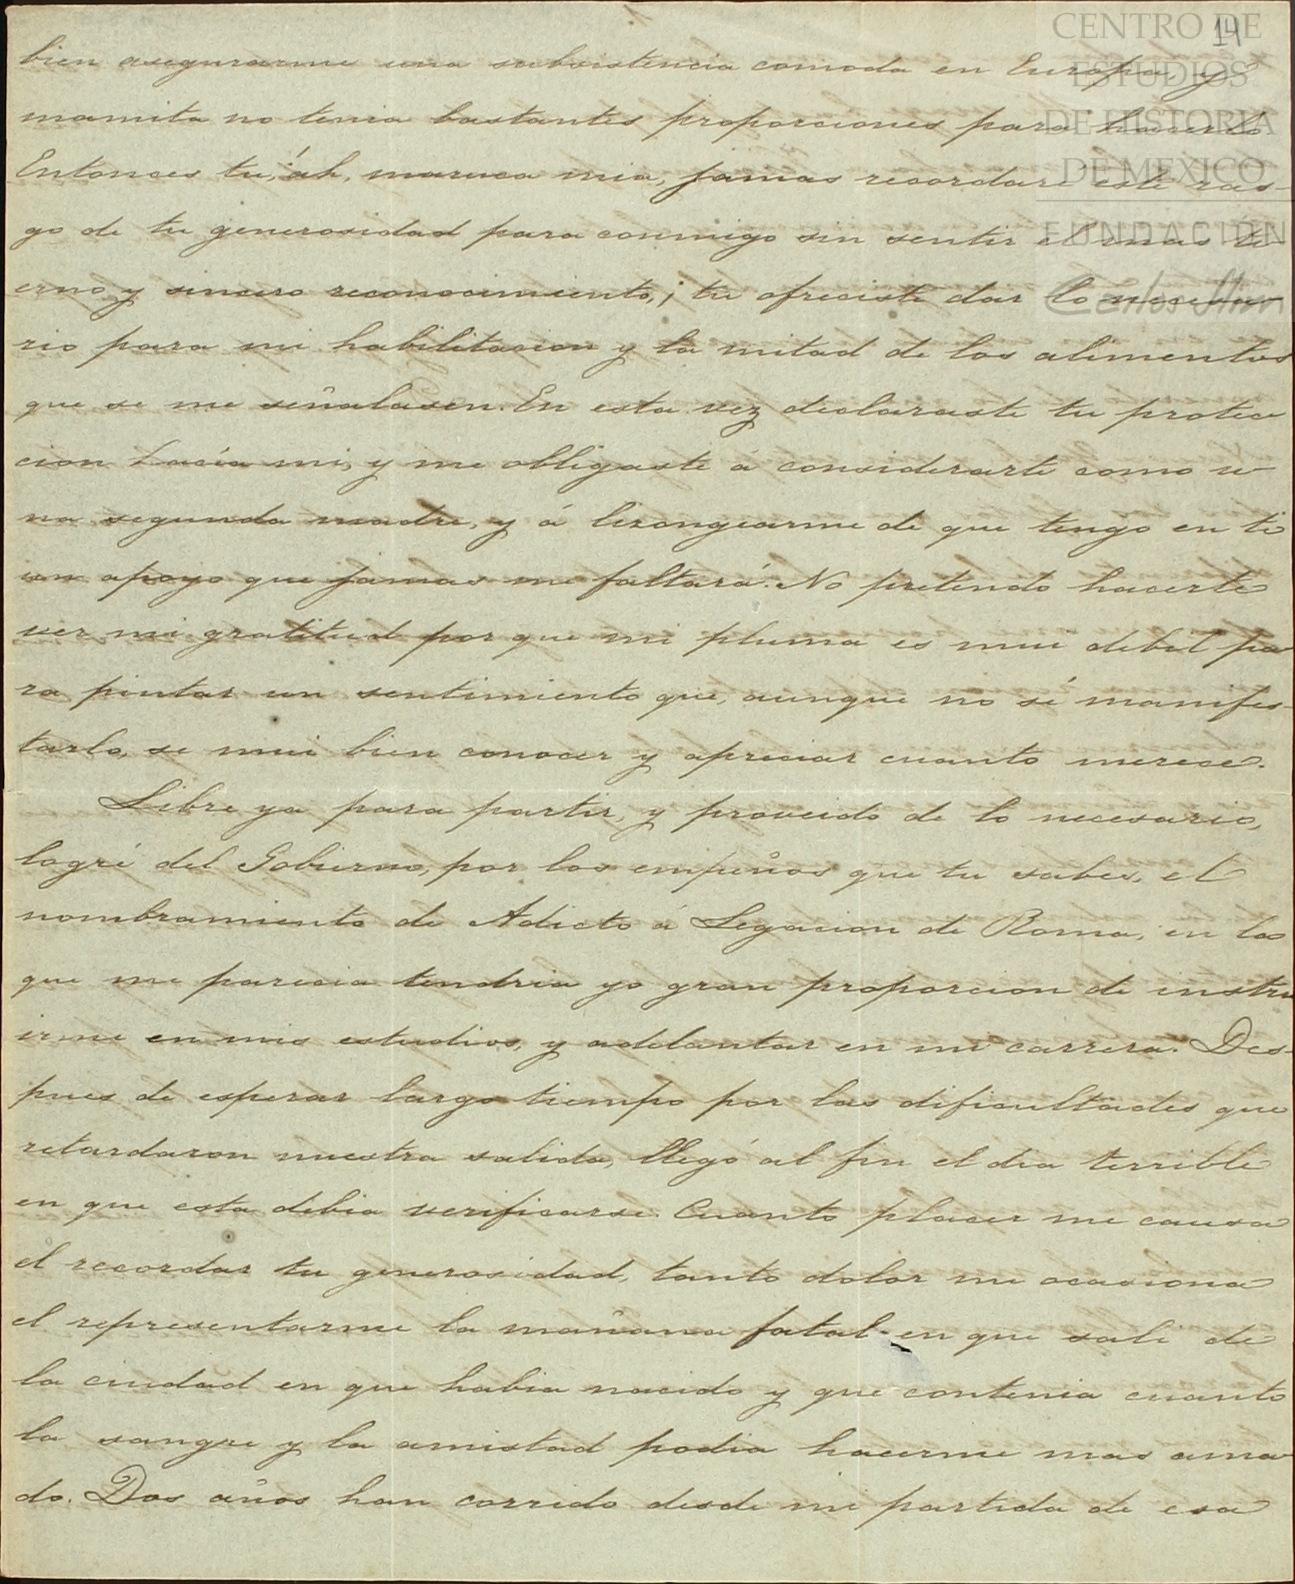 14
CENTRO DE
ESTUDIOS
DE HISTORIA
DE MEXICO
FUNDACIÓN
Carlos Slim
bien asegurarme una subsistencia comoda en Europa, y
mamita no tenia bastantes proporciones para hacerlo
Entonces tu, ¡ah, maruca mia, jamas recordaré este ras-
go de tu generosidad para conmigo sin sentir el mas ti-
erno y sincero reconocimiento,! tu ofreciste dar lo necesa-
rio para mi habilitacion y la mitad de los alimentos
que se me señalasen. En esta vez declaraste tu protec
cion hacia mi, y me obligaste á considerarte como u-
na segunda madre, y á lisongearme de que tengo en ti
un apoyo que jamas me faltará. No pretendo hacerte
ver mi gratitud por que mi pluma es mui debil pa
ra pintar un sentimiento que, aunque no sé manifes-
tarlo, se mui bien conocer y apreciar cuanto merece.
Libre ya para partir, y proveido de lo necesario,
logré del Gobierno, por los empeños que tu sabes, el
nombramiento de Adicto á Legacion de Roma, en la
que me parecia tendria yo gran proporcion de instru
irme en mis estudios, y adelantar en mi carrera. Des-
pues de esperar largo tiempo por las dificultades que
retardaron nuestra salida, llegó al fin el dia terrible
en que esta debia verificarse. Cuanto placer me causa
el recordar tu generosidad, tanto dolor me ocasiona
el representarme la mañana fatal en que sali de
la ciudad en que habia nacido y que contenia cuanto
la sangre y la amistad podia hacerme mas ama
do. Dos años han corrido desde mi partida de esa